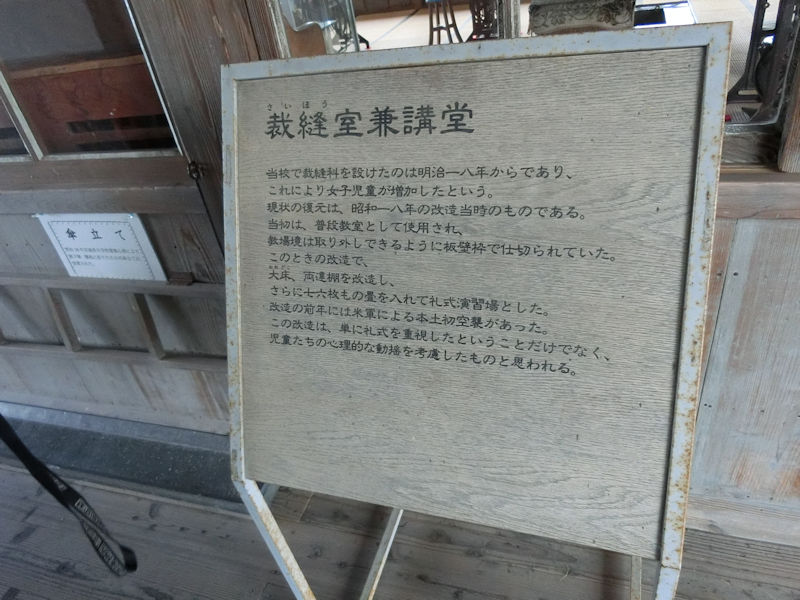 さいほう
裁縫室兼講堂
当校で裁縫科を設けたのは明治一八年からであり、
これにより女子児童が増加したという。
現状の復元は、昭和一八年の改造当時のものである。
当初は、普段教室として使用され、
教場境は取り外しできるように板壁枠で仕切られていた。
このときの改造で、
大床、両違棚を改造し、
さらに七六枚もの畳を入れて礼式演習場とした。
改造の前年には米軍による本土初空襲があった。
この改造は、単に礼式を重視したということだけでなく、
児童たちの心理的な動揺を考慮したものと思われる。
傘立て